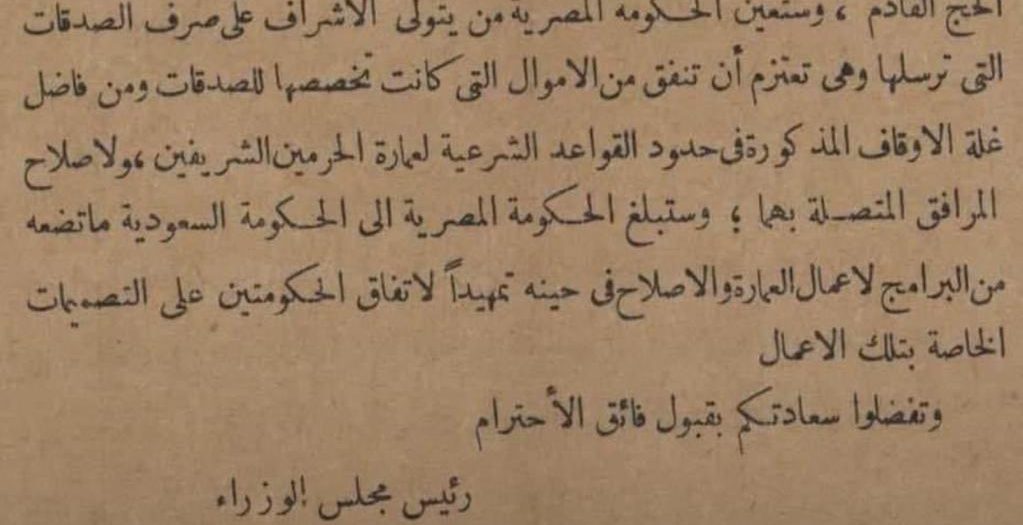 الحج القادم ، وستعين الحكومه المصرية من يتولى الاشراف على صرف الصدقات
التى ترسلها وهى تعتزم أن تنفق من الاموال التى كانت تخصصها للصدقات ومن فاضل
غلة الاوقاف المذكورة فى حدود القواعد الشرعية لعمارة الحرمين الشريفين ، ولاصلاح
المرافق المتصلة بهما ؛ وستبلغ الحكومة المصرية الى الحكومة السعودية ماتضعه
من البرامج لاعمال العمارة والاصلاح فى حينه تمهيداً لاتفاق الحكومتين على التصميمات
الخاصة بتلك الاعمال
وتفضلوا سعادتكم بقبول فائق الأحترام
رئيس مجلس الوزراء